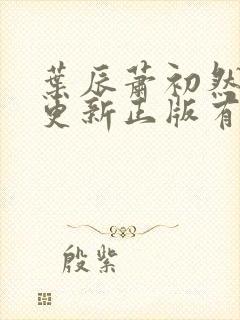 葉辰蕭初然
更新正版有
殷紫